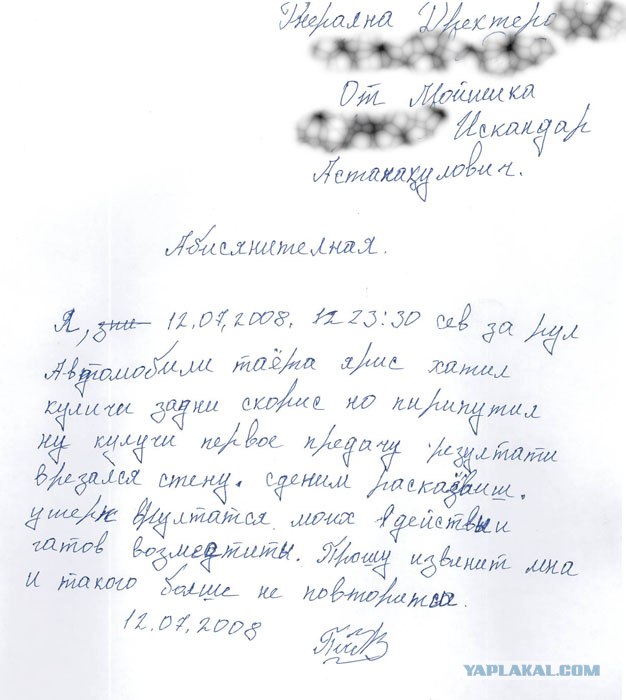 Генерална Директеро
От Мойшика
Искандар
Астанакулович.
Абисянителная.
Я, зпи 12.07.2008. 12 23:30 сев за рул
Автомобили таёта ярис хатил
куличи задни скорис но пирипутил
ну кулучи первое предачу резултати
врезался стену. сденим расказваиш.
ушерп врултатся моих в действи
гатов возмедтиты. Прошу извенит мна
и такого болше не повторитса.
12.07.2008
YAPLAKAL.COM